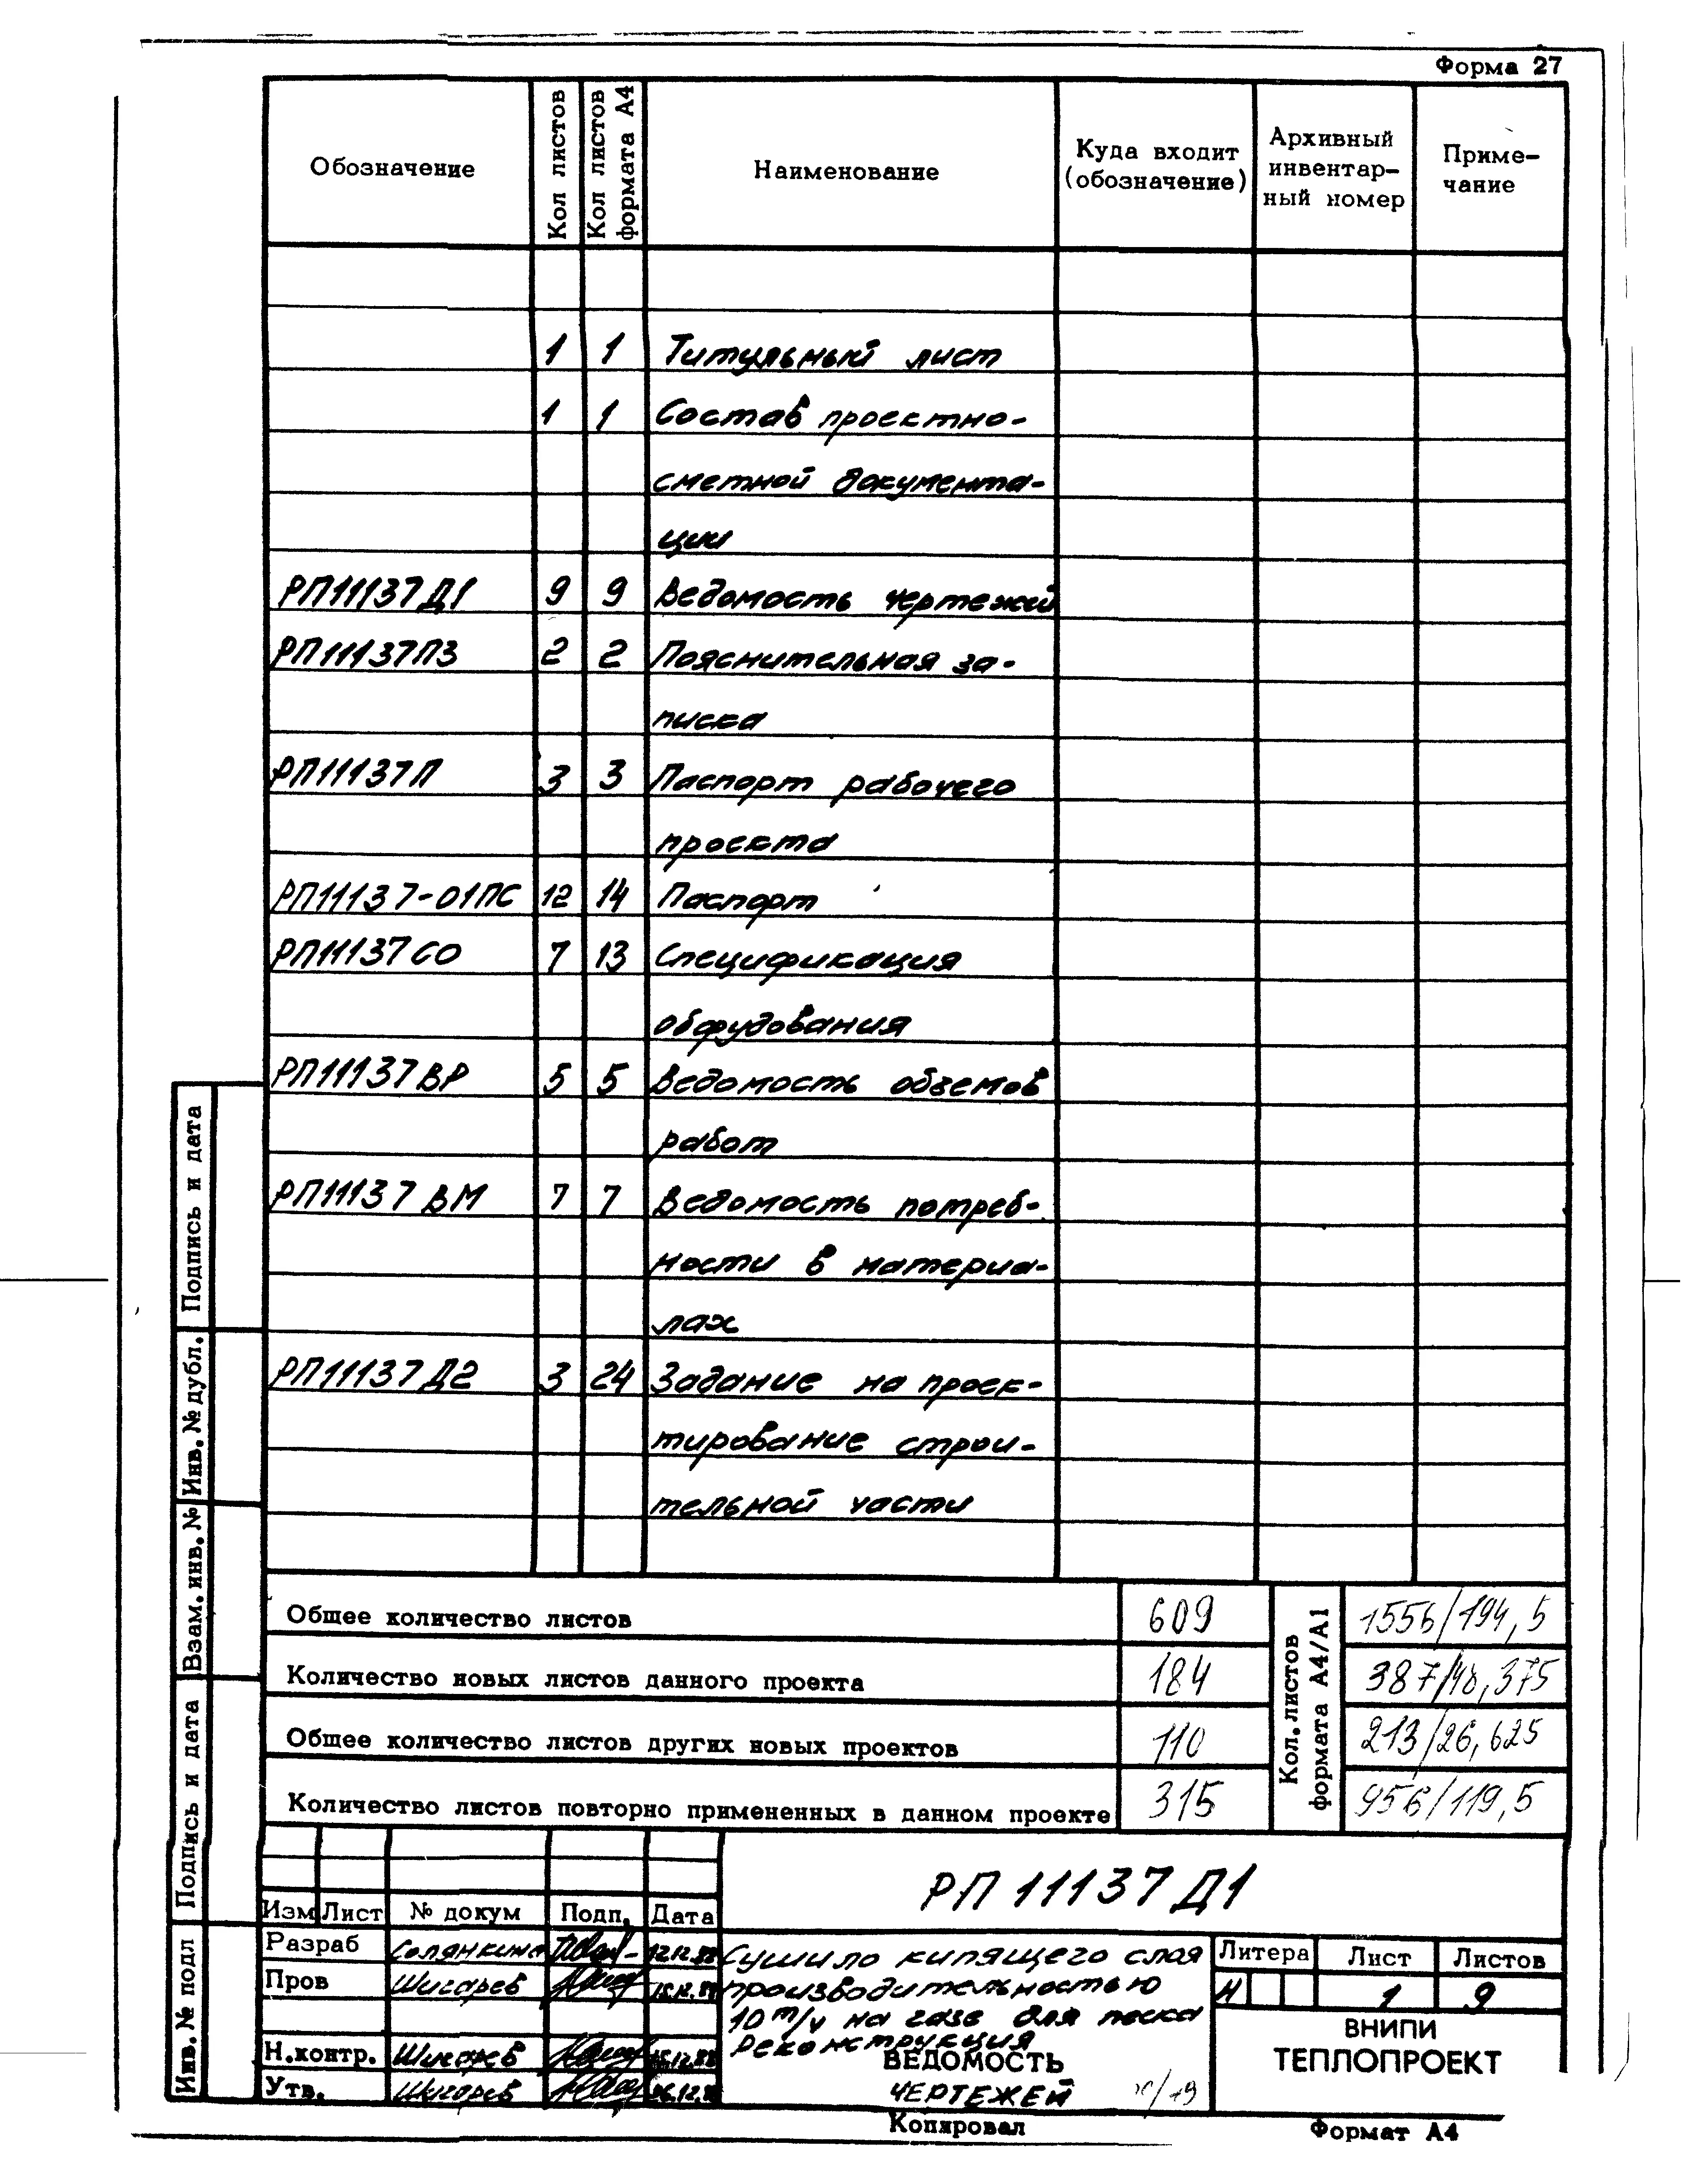 Форма 27
Обозначение
Кол листов
Кол листов формата А4
Наименование
Куда входит (обозначение)
Архивный инвентар-ный номер
Приме-чание
1 1 Титульный лист
1 1 Состав проектно-
сметной документа-
ции
РП11137Д1 9 9 Ведомость чертежей
РП11137ПЗ 2 2 Пояснительная за-
писка
РП11137П 3 3 Паспорт рабочего
проекта
РП11137-01ПС 12 14 Паспорт
РП11137СО 7 13 Спецификация
оборудования
РП11137ВР 5 5 Ведомость объемов
работ
РП11137ВМ 7 7 Ведомость потреб-
ности в материа-
лах
РП11137Д2 3 24 Задание на проек-
тирование строи-
тельной части
Общее количество листов 609
Количество новых листов данного проекта 184
Общее количество листов других новых проектов 110
Количество листов повторно примененных в данном проекте 315
Кол.листов формата А4/А1
1556/194,5
387/48,375
213/26,625
956/119,5
РП11137Д1
Изм Лист № докум Подп. Дата
Разраб Солянкина 12.12.88
Пров Шигарев
Н.контр. Шигарев
Утв. Шигарев
Сушило кипящего слоя
производительностью
10 т/ч на газе для песка
Реконструкция
ВЕДОМОСТЬ
ЧЕРТЕЖЕЙ
Литера Лист Листов
И 1 9
ВНИПИ
ТЕПЛОПРОЕКТ
Копировал
Формат А4
Подпись и дата
Инв.№ дубл.
Взам.инв.№
Подпись и дата
Инв.№ подл